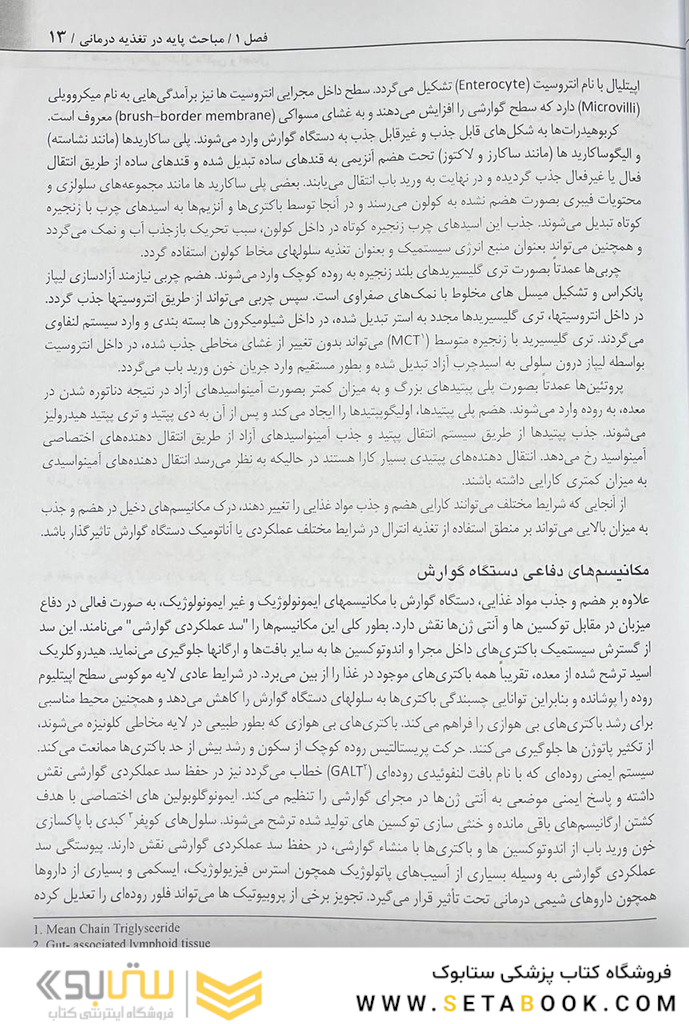 فصل ۱/ مباحث پایه در تغذیه درمانی / ۱۳
اپیتلیال با نام انتروسیت (Enterocyte) تشکیل می‌گردد. سطح داخل مجرایی انتروسیت ها نیز برآمدگی‌هایی به نام میکروویلی
(Microvilli) دارد که سطح گوارشی را افزایش می‌دهند و به غشای مسواکی (brush–border membrane) معروف است.
کربوهیدرات‌ها به شکل‌های قابل جذب و غیرقابل جذب به دستگاه گوارش وارد می‌شوند. پلی ساکاریدها (مانند نشاسته)
و الیگوساکارید ها (مانند ساکارز و لاکتوز) تحت هضم آنزیمی به قندهای ساده تبدیل شده و قندهای ساده از طریق انتقال
فعال یا غیرفعال جذب گردیده و در نهایت به ورید باب انتقال می‌یابند. بعضی پلی ساکارید ها مانند مجموعه‌های سلولزی و
محتویات فیبری بصورت هضم نشده به کولون می‌رسند و در آنجا توسط باکتری‌ها و آنزیم‌ها به اسیدهای چرب با زنجیره
کوتاه تبدیل می‌شوند. جذب این اسیدهای چرب زنجیره کوتاه در داخل کولون، سبب تحریک بازجذب آب و نمک می‌گردد
و همچنین می‌تواند بعنوان منبع انرژی سیستمیک و بعنوان تغذیه سلولهای مخاط کولون استفاده گردد.
چربی‌ها عمدتاً بصورت تری گلیسیریدهای بلند زنجیره به روده کوچک وارد می‌شوند. هضم چربی نیازمند آزادسازی لیپاز
پانکراس و تشکیل میسل های مخلوط با نمک‌های صفراوی است. سپس چربی می‌تواند از طریق انتروسیتها جذب گردد.
در داخل انتروسیتها، تری گلیسیریدها مجدد به استر تبدیل شده، در داخل شیلومیکرون ها بسته بندی و وارد سیستم لنفاوی
می‌گردند. تری گلیسیرید با زنجیره متوسط (MCT۱) می‌تواند بدون تغییر از غشای مخاطی جذب شده، در داخل انتروسیت
بواسطه لیپاز درون سلولی به اسیدچرب آزاد تبدیل شده و بطور مستقیم وارد جریان خون ورید باب می‌گردد.
پروتئین‌ها عمدتاً بصورت پلی پپتیدهای بزرگ و به میزان کمتر بصورت آمینواسیدهای آزاد در نتیجه دناتوره شدن در
معده، به روده وارد می‌شوند. هضم پلی پپتیدها، اولیگوپپتیدها را ایجاد می‌کند و پس از آن به دی پپتید و تری پپتید هیدرولیز
می‌شوند. جذب پپتیدها از طریق سیستم انتقال پپتید و جذب آمینواسیدهای آزاد از طریق انتقال دهنده‌های اختصاصی
آمینواسید رخ می‌دهد. انتقال دهنده‌های پپتیدی بسیار کارا هستند در حالیکه به نظر می‌رسد انتقال دهنده‌های آمینواسیدی
به میزان کمتری کارایی داشته باشند.
از آنجایی که شرایط مختلف می‌توانند کارایی هضم و جذب مواد غذایی را تغییر دهند، درک مکانیسم‌های دخیل در هضم و جذب
به میزان بالایی می‌تواند بر منطق استفاده از تغذیه انترال در شرایط مختلف عملکردی یا آناتومیک دستگاه گوارش تاثیرگذار باشد.
مکانیسم‌های دفاعی دستگاه گوارش
علاوه بر هضم و جذب مواد غذایی، دستگاه گوارش با مکانیسمهای ایمونولوژیک و غیر ایمونولوژیک، به صورت فعالی در دفاع
میزبان در مقابل توکسین ها و آنتی ژن‌ها نقش دارد. بطور کلی این مکانیسم‌ها را "سد عملکردی گوارشی" می‌نامند. این سد
از گسترش سیستمیک باکتری‌های داخل مجرا و اندوتوکسین ها به سایر بافت‌ها و ارگانها جلوگیری می‌نماید. هیدروکلریک
اسید ترشح شده از معده، تقریباً همه باکتری‌های موجود در غذا را از بین می‌برد. در شرایط عادی لایه موکوسی سطح اپیتلیوم
روده را پوشانده و بنابراین توانایی چسبندگی باکتری‌ها به سلولهای دستگاه گوارش را کاهش می‌دهد و همچنین محیط مناسبی
برای رشد باکتری‌های بی هوازی را فراهم می‌کند. باکتری‌های بی هوازی که بطور طبیعی در لایه مخاطی کلونیزه می‌شوند،
از تکثیر پاتوژن ها جلوگیری می‌کنند. حرکت پریستالتیس روده کوچک از سکون و رشد بیش از حد باکتری‌ها ممانعت می‌کند.
سیستم ایمنی روده‌ای که با نام بافت لنفوئیدی روده‌ای (GALT۲) خطاب می‌گردد نیز در حفظ سد عملکردی گوارشی نقش
داشته و پاسخ ایمنی موضعی به آنتی ژن‌ها در مجرای گوارشی را تنظیم می‌کند. ایمونوگلوبولین های اختصاصی با هدف
کشتن ارگانیسم‌های باقی مانده و خنثی سازی توکسین های تولید شده ترشح می‌شوند. سلول‌های کوپفر۳ کبدی با پاکسازی
خون ورید باب از اندوتوکسین ها و باکتری‌ها با منشاء گوارشی، در حفظ سد عملکردی گوارشی نقش دارند. پیوستگی سد
عملکردی گوارشی به وسیله بسیاری از آسیب‌های پاتولوژیک همچون استرس فیزیولوژیک، ایسکمی و بسیاری از داروها
همچون داروهای شیمی درمانی تحت تأثیر قرار می‌گیرد. تجویز برخی از پروبیوتیک ها می‌تواند فلور روده‌ای را تعدیل کرده
1. Mean Chain Triglysceride
2. Gut- associated lymphoid tissue
فروشگاه کتاب پزشکی ستابوک
WWW.SETABOOK.COM
ستابوک
فروشگاه اینترنتی کتاب